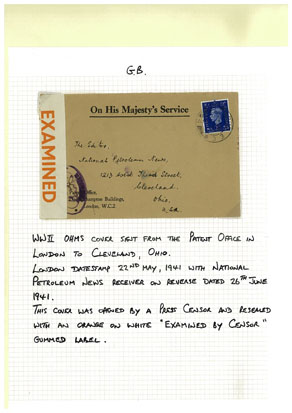 G.B.
EXAMINED
On His Majesty's Service
The Editor,
National Petroleum News,
1213 West Third Street,
Cleveland.
Ohio.
U.S.A.
Office,
hampton Buildings,
London, W.C.2
WWII OHMS COVER SENT FROM THE PATENT OFFICE IN
LONDON TO CLEVELAND, OHIO.
LONDON DATESTAMP 22ND MAY, 1941 WITH NATIONAL
PETROLEUM NEWS RECEIVER ON REVERSE DATED 26TH JUNE
1941.
THIS COVER WAS OPENED BY A PRESS CENSOR AND RESEALED
WITH AN ORANGE ON WHITE "EXAMINED BY CENSOR"
GUMMED LABEL.